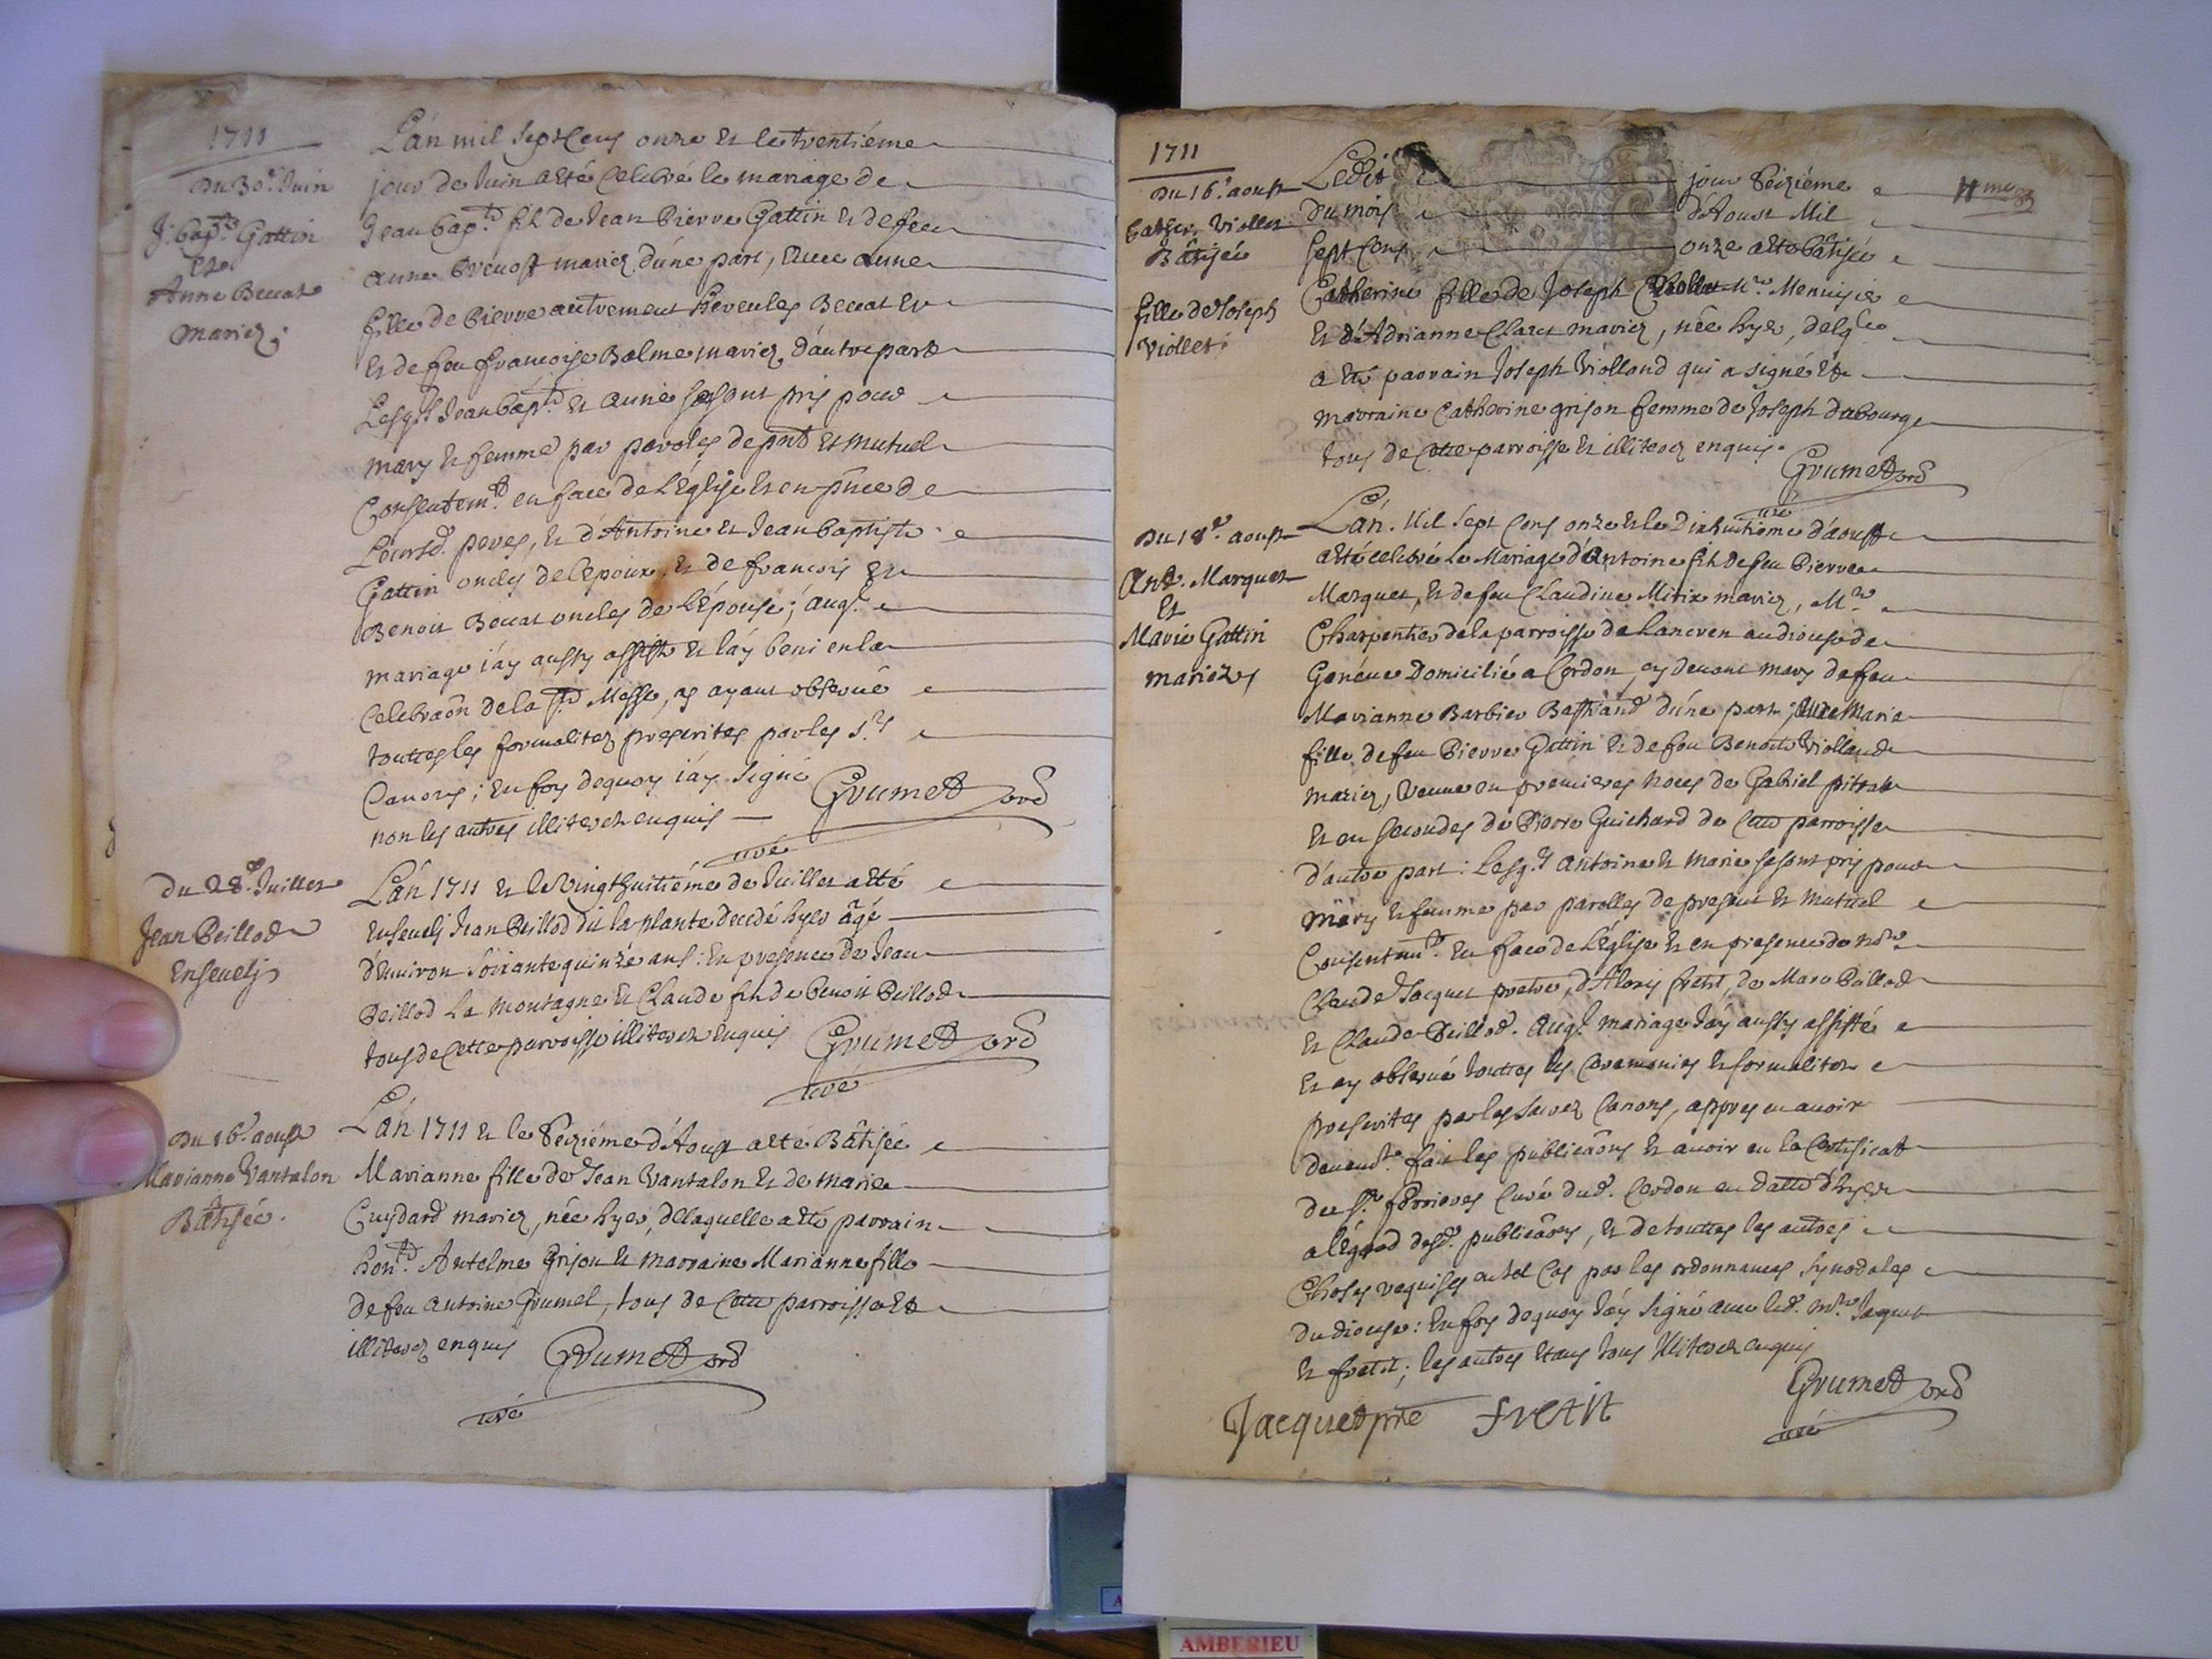 1711
du 30e Juin
J. bapt. Gattin
Et
Anne Beccat
Mariez.
L'an mil sept Cens onze et le trentiéme
jour de Juin a esté Celebré le mariage de
Jean bapt. fils de Jean Pierre Gattin et de feu
anne Prevost mariez d'une part, avec anne
fille de Pierre autrement hercules Beccat et
et de feu francoise Balme mariez d'autre part
Lesqls Jean bapt. et anne se sont pris pour
mary et femme par paroles de pnt et mutuel
Consentemt. en face de L'église et en pnce de
Leursd. peres, et d'Antoine et Jean baptiste
Gattin oncles de l'epoux, et de francois et
Benoit Beccat oncles de L'épouse; auql
mariage j'ay aussy assisté et l'ay beni en la
Celebraôn de la ste Messe, y ayant observé
touttes les formalitez prescrites par les Sts
Canons; En foy dequoy j'ay Signé
non les autres illiterez enquis
Grumet ord
curé
du 28e Juillet
Jean Beillod
Ensevely
L'an 1711 et le Vingthuitiéme de Juillet a esté
Ensevely Jean Beillod du la plante decedé hyer âgé
d'environ Soixante quinze ans: En presence de Jean
Beillod La montagne et Claude fils de benoit Beillod
tous de Cette parroisse illiterez Enquis
Grumet ord
curé
du 16e aoust
Marianne Vantalon
Bâtisée.
L'an 1711 et le Seiziéme d'Aoust a esté Bâtisée
Marianne fille de Jean Vantalon et de Marie
Cuydard mariez, née hyer, de laquelle a esté parrain
hont. Antelme Grison et marraine Marianne fille
de feu Antoine Grumel, tous de Cette parroisse et
illiterez enquis
Grumet ord
curé
1711
du 16e aoust
Cather. Viollet
Bâtisée
fille de Joseph
Viollet
Ledit jour Seiziéme
du mois d'Aoust Mil
Sept Cens onze a esté bâtisée
Catherine fille de Joseph Viollet Mre Menuisier
Et d'Adrianne Claret mariez, née hyer, de lqlle
a esté parrain Joseph Violland qui a signé et
marraine Catherine grison femme de Joseph dubourg
tous de Cette parroisse et illiterez enquis.
Grumet ord
curé
du 18e aoust
Ant. Marquet
Et
Marie Gattin
mariez
L'an Mil Sept Cens onze et le Dixhuitiéme d'aoust
a esté celebré Le Mariage d'Antoine fils de feu Pierre
Marquet, et de feu Claudine Mirix mariez, Mre
Charpentier de la parroisse de Lancren au diocese de
Genéve Domicilié a Cerdon, cy devant mary de feu
Marianne Barbier Bastrand d'une part; avec Marie
fille de feu Pierre Gattin et de feu Benoite Violland
mariez, veuve en premieres noces de Gabriel pitrat
et en secondes de Pierre Guichard de Cette parroisse
d'autre part: Lesqls Antoine et Marie se sont pris pour
mary et femme par parolles de present et Mutuel
Consentemt. En face de L'église et en presence de Mre
Claude Jacquet pretre, d'Aloris fretit, de Marc Ballod
et Claude Beillod. Auql. mariage j'ay aussy assisté
et ay observé touttes les Ceremonies et formalitez
prescrites par les Sacrez Canons, appres en avoir
devemt. fait les publicaôns et avoir eu le Certificat
du Sr. ferrieres Curé dud. Cerdon en datte d'hyer
a l'égard desd. publicaôns, et de touttes les autres
Choses requises en tel Cas par les ordonnances Synodales
du diocese: En foy dequoy j'ay Signé avec led. Mre Jaquet
et fretit; les autres étant tous Illiterez enquis
Grumet ord
curé
Jacquet ptre fretit
AMBERIEU